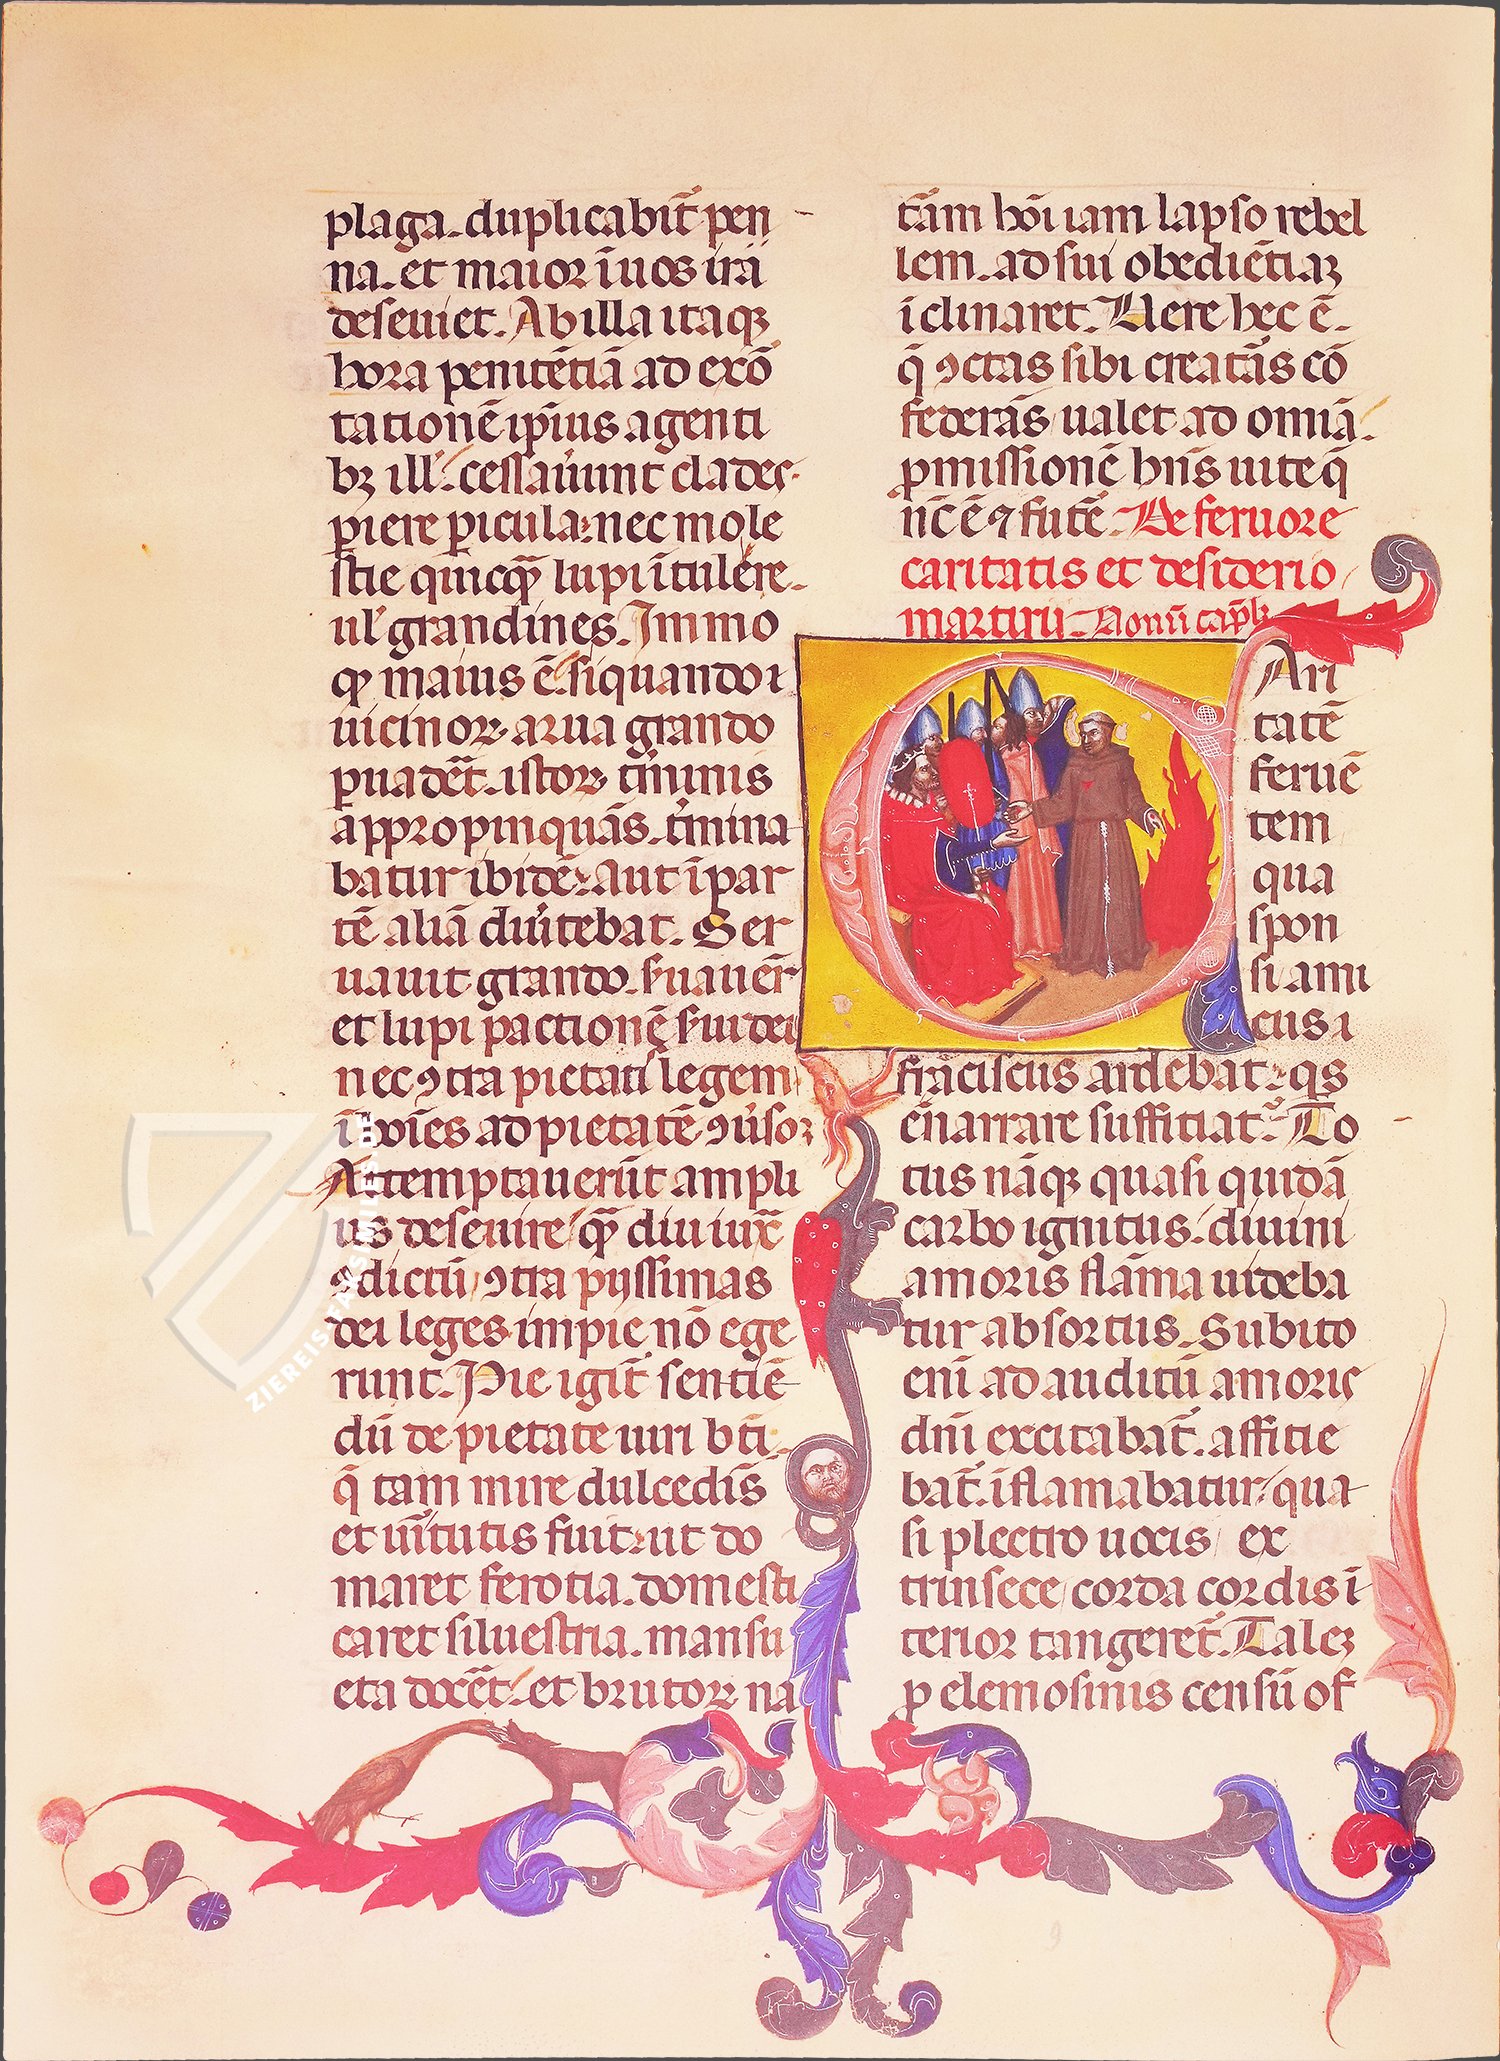 plaga. duplicabit̃ pen
na. et maior ĩ uos irã
deseuiet. Ab illa itaqꝫ
hora penitẽtiã ad exõ
tationẽ ip̃ius agenti
bꝫ ill'. cessauũnt clades.
ꝑiere ꝑicula. nec mole
stie quicqꝫ lupi ĩtulere.
ul' grandines. Immo
qꝫ maius ẽ. si quando i
uicinoꝝ arua grando
ꝑuadet̃. istoꝝ t̃minis
appropinquãs. t̃mina
batur ibidẽ. Aut ĩ par
tẽ aliã diũtebat. Ser
uauit grando. seruauer̃
et lupi pactionẽ serui dei
nec ꝯtra pietatis legem
ĩ hoı̃es ad pietatẽ ꝯũsoꝝ
Attemptauerũt ampli
us deseuire qꝫ diu iux̃
ꝯdictũ ꝯtra pijssimas
dei leges. impie nõ ege
runt. Pie igit̃ sentiẽ
dũ de pietate uiri bt̃i.
q̃ tam mire dulcedĩs
et uĩtutis fuit. ut do
maret ferotia. domesti
caret siluestria. mansu
eta docet̃. et brutoꝝ na
tãm hõi iam lapso rebel
lem. ad sui obediẽtiaꝫ
ĩclinaret. Uere hec ẽ.
q̃ ꝯctas sibi creatãs cõ
federãs ualet ad omiã.
ꝓmissionẽ hñs uite q̃
nc̃ ẽ ⁊ fut̃e. De feruore
caritatis et desiderio
martirii. Nonũ capl̃'.
Cari
tatẽ
feruẽ
tem
qua
spon
si ami
cus i
frãciscus ardebat. qs
enarrare suffitiat? To
tus nãqꝫ quasi quidã
carbo ignitus. diuini
amoris flãma uideba
tur absortus. Subito
enĩ ad auditũ amoris
dnĩ excitabat̃. affitie
bat̃. ĩflamabatur. qua
si plectro uocis ex
trinsece corda cordis ĩ
terior tangeret̃. Taleꝫ
ꝓ elemosinis censũ of
ZIEREIS FAKSIMILES.DE